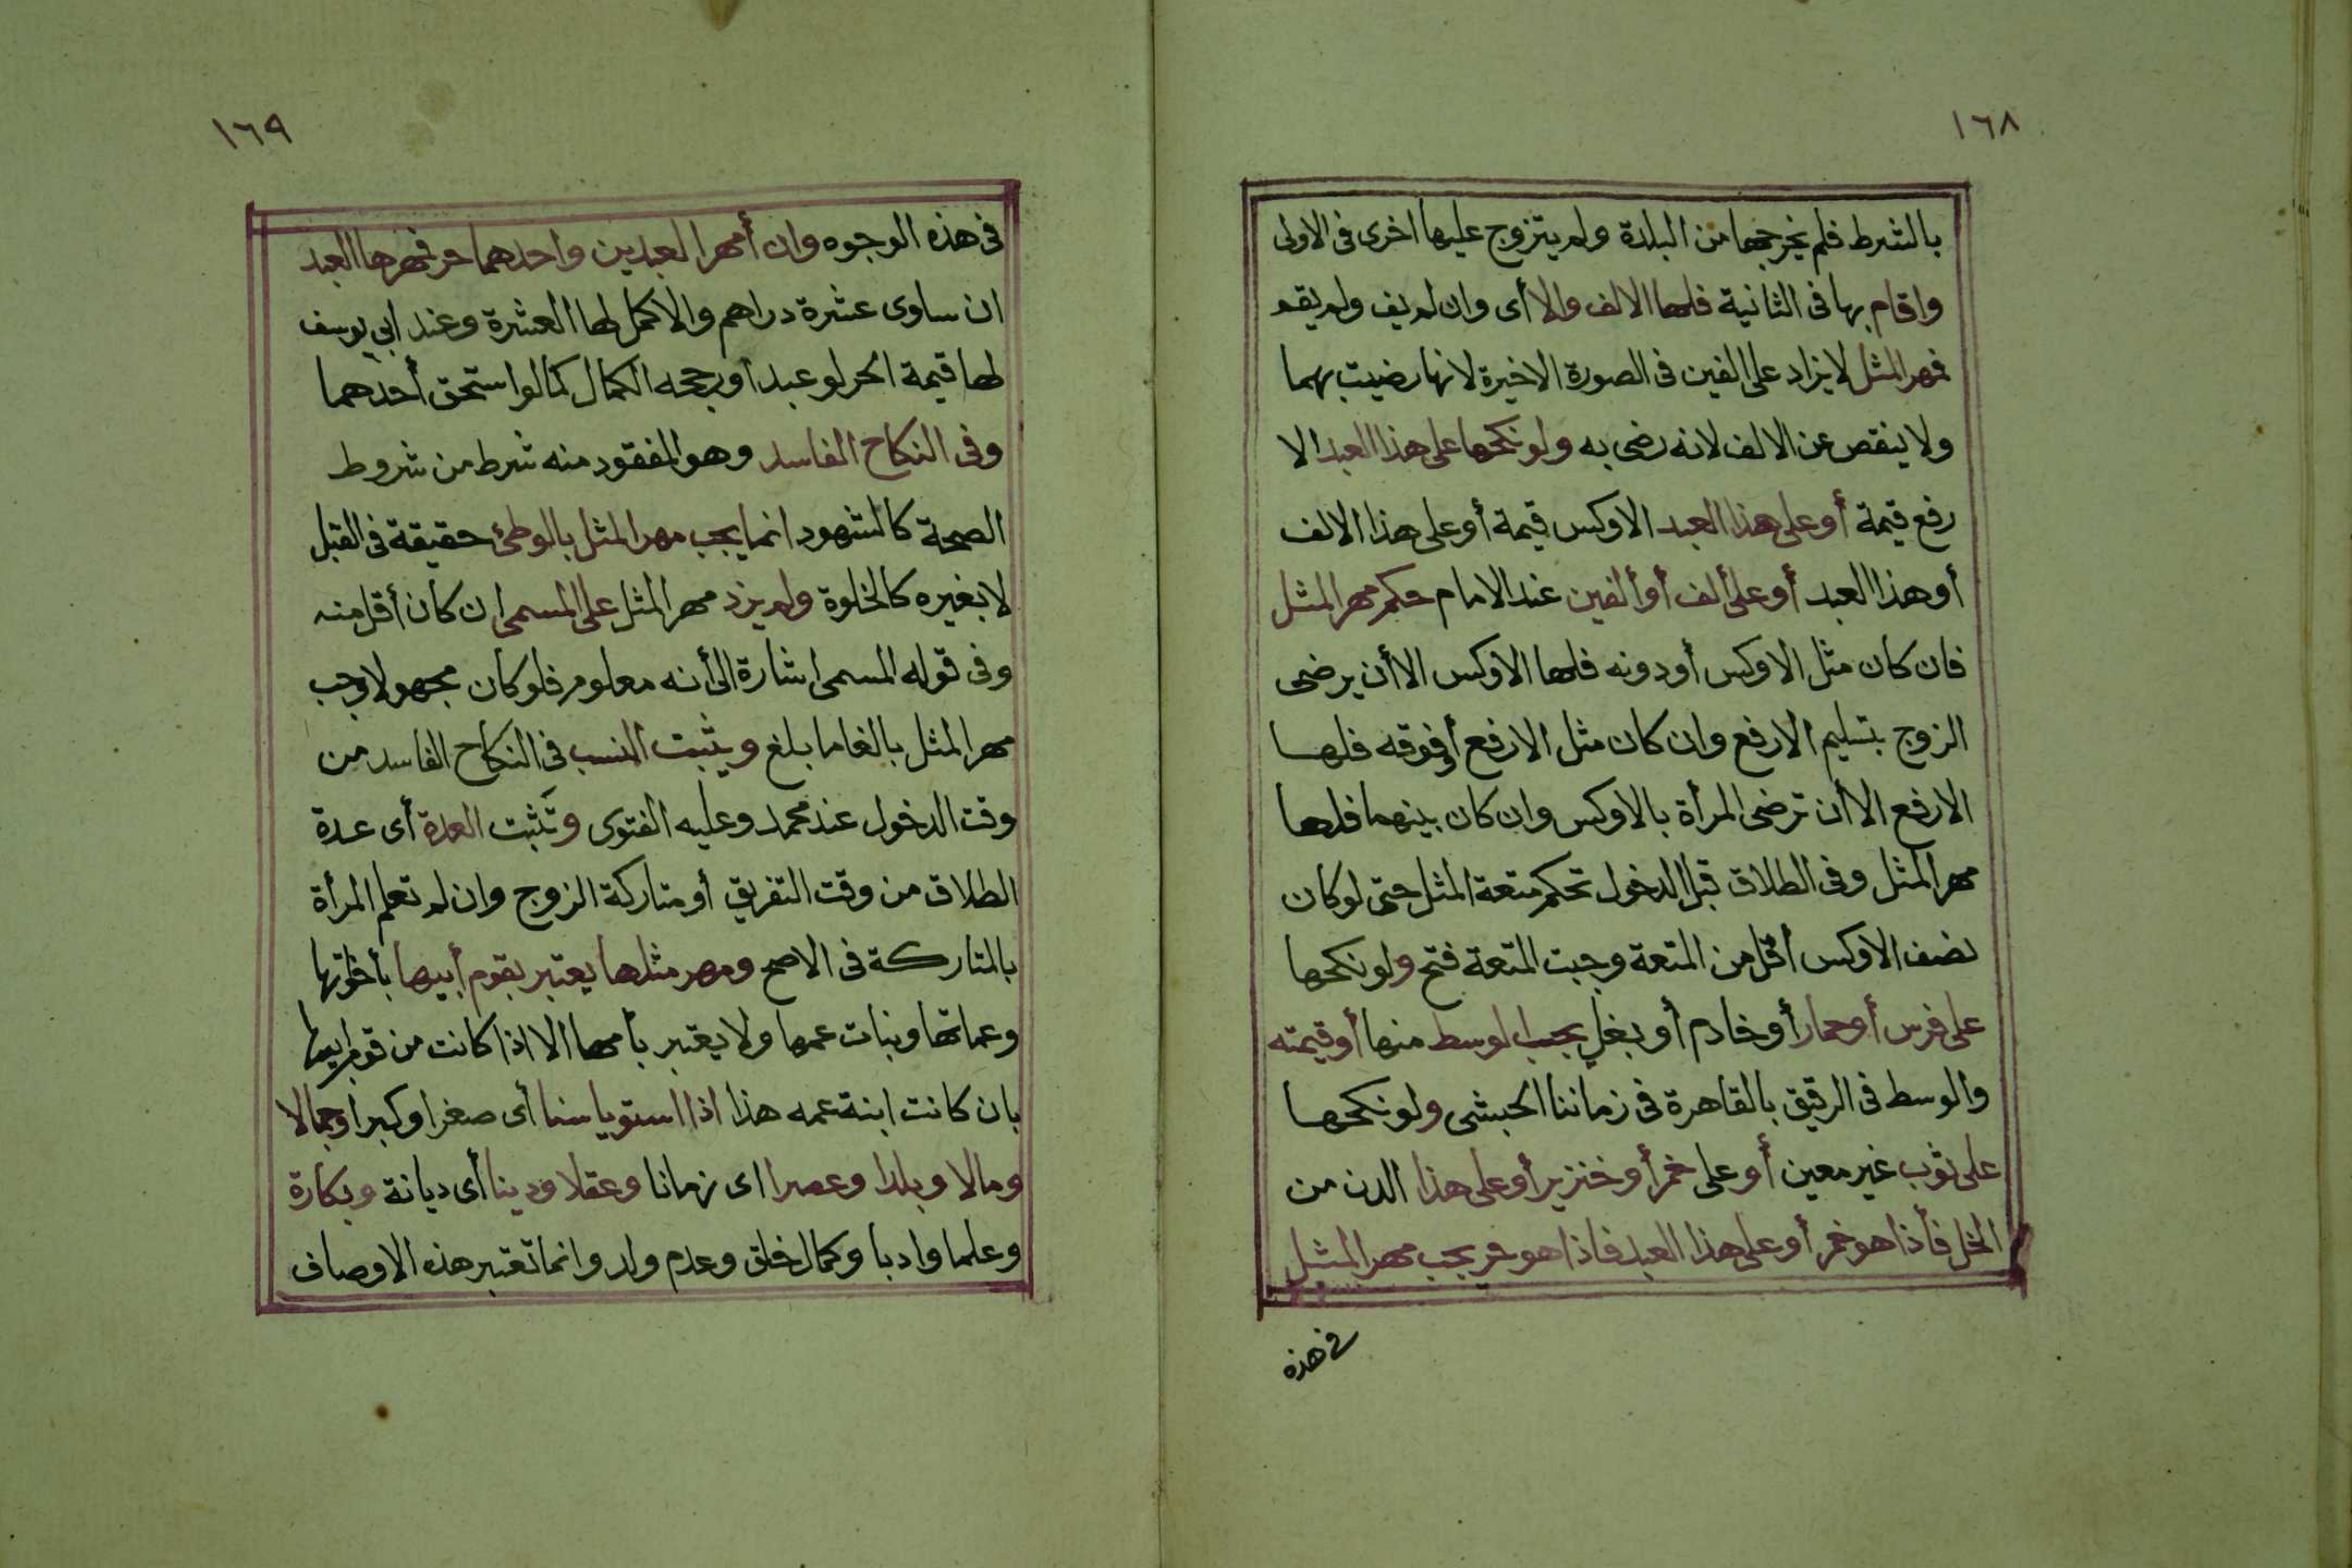 ١٦٨
بالشرط فلم يخرجها من البلدة ولم يتزوج عليها اخرى فى الاولى
واقام بها فى الثانية فلها الالف والا أى وان لم يف ولم يقم
فمهر المثل لا يزاد على الفين فى الصورة الاخيرة لانها رضيت بهما
ولا ينقص عن الالف لانه رضى به ولو نكحها على هذا العبد الا
رفع قيمة أو على هذا العبد الاوكس قيمة أو على هذا الالف
أو هذا العبد أو على ألف أو ألفين عند الامام حكم مهر المثل
فان كان مثل الاوكس أو دونه فلها الاوكس الا أن يرضى
الزوج بتسليم الارفع وان كان مثل الارفع أو فوقه فلها
الارفع الا أن ترضى المرأة بالاوكس وان كان بينهما فلها
مهر المثل وفى الطلاق قبل الدخول تحكم متعة المثل حتى لو كان
نصف الاوكس أقل من المتعة وجبت المتعة فتح ولو نكحها
على فرس أو حمار أو خادم أو بغل يجب الوسط منها أو قيمته
والوسط فى الرقيق بالقاهرة فى زماننا الحبشى ولو نكحها
على ثوب غير معين أو على خمر أو خنزير أو على هذا الدن من
الخل فأذا هو خمر أو على هذا العبد فاذا هو حر يجب مهر المثل
فى هذه
١٦٩
فى هذه الوجوه وان أمهر العبدين واحدهما حر فمهرها العبد
ان ساوى عشرة دراهم والا كمل لها العشرة وعند ابي يوسف
لها قيمة الحر لو عبدا ورجحه الكمال كما لو استحق أحدهما
وفى النكاح الفاسد وهو المفقود منه شرط من شروط
الصحة كالشهود انما يجب مهر المثل بالوطئ حقيقة فى القبل
لا بغيره كالخلوة ولم يزد مهر المثل على المسمى ان كان أقل منه
وفى قوله المسمى اشارة الى أنه معلوم فلو كان مجهولا وجب
مهر المثل بالغا ما بلغ ويثبت النسب فى النكاح الفاسد من
وقت الدخول عند محمد وعليه الفتوى وتثبت العدة أى عدة
الطلاق من وقت التفريق أو متاركة الزوج وان لم تعلم المرأة
بالمتاركة فى الاصح ومهر مثلها يعتبر بقوم أبيها بأخوتها
وعماتها وبنات عمها ولا يعتبر بأمها الا اذا كانت من قوم ابيها
بان كانت ابنة عمه هذا اذا استويا سنا أى صغرا وكبرا وجمالا
ومالا وبلدا وعصرا اى زمانا وعقلا ودينا أى ديانة وبكارة
وعلما وادبا وكمال خلق وعدم ولد وانما تعتبر هذه الاوصاف